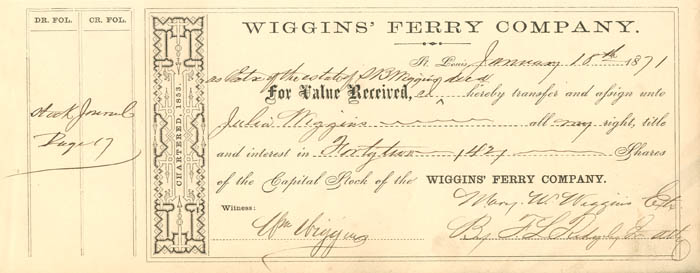 DR. FOL. CR. FOL.
Stock Journal
Page 17
CHARTERED, 1853.
WIGGINS' FERRY COMPANY.
St. Louis, January 18th 1871
as Extx of the estate of S B Wiggins decd
For Value Received, hereby transfer and assign unto
Julia Wiggins all my right, title
and interest in Forty two (42) Shares
of the Capital Stock of the WIGGINS' FERRY COMPANY.
Witness: Mary W Wiggins Extx
Wm Wiggins By F L Atty